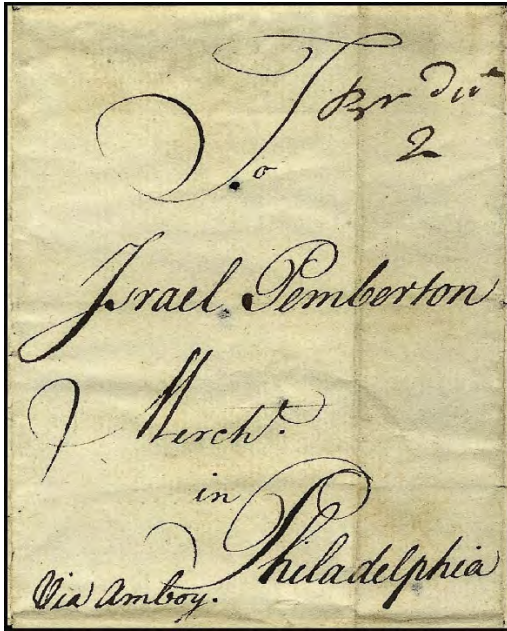 To
2
Israel Pemberton
Mercht.
in
Philadelphia
Via Amboy.